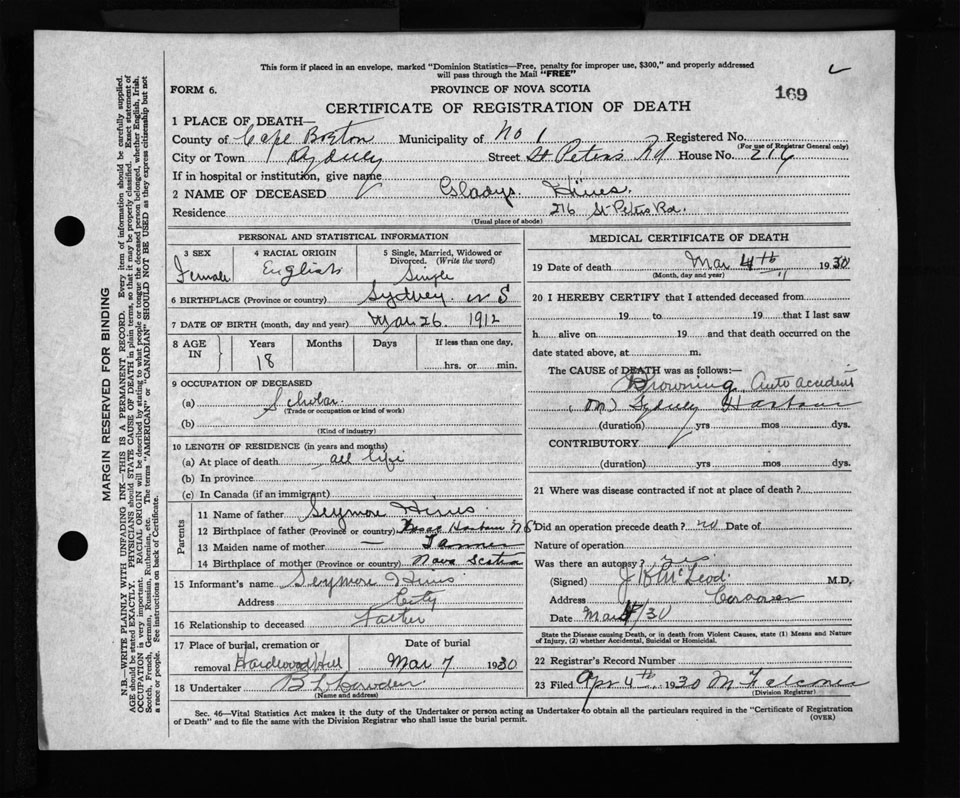 This form if placed in an envelope, marked "Dominion Statistics—Free, penalty for improper use, $300," and properly addressed
will pass through the Mail "FREE"
FORM 6.
PROVINCE OF NOVA SCOTIA
169
CERTIFICATE OF REGISTRATION OF DEATH
1 PLACE OF DEATH—
County of Cape Breton Municipality of No 1 Registered No.
(For use of Registrar General only)
City or Town Sydney Street St Peters Rd House No. 216
If in hospital or institution, give name
2 NAME OF DECEASED Gladys Hines.
Residence 216 St Peters Rd.
(Usual place of abode)
PERSONAL AND STATISTICAL INFORMATION
3 SEX Female
4 RACIAL ORIGIN English
5 Single, Married, Widowed or
Divorced. (Write the word)
Single
6 BIRTHPLACE (Province or country) Sydney N S
7 DATE OF BIRTH (month, day and year) Mar 26. 1912
8 AGE IN Years 18 Months Days If less than one day,
hrs. or min.
9 OCCUPATION OF DECEASED
(a) Scholar
(Trade or occupation or kind of work)
(b)
(Kind of industry)
10 LENGTH OF RESIDENCE (in years and months)
(a) At place of death all life
(b) In province
(c) In Canada (if an immigrant)
Parents
11 Name of father Seymore Hines
12 Birthplace of father (Province or country) Harbour N S
13 Maiden name of mother — Tanner
14 Birthplace of mother (Province or country) Nova Scotia
15 Informant's name Seymore Hines
Address City
16 Relationship to deceased Father
17 Place of burial, cremation or
removal Hardwood Hill
Date of burial
Mar 7 1930
18 Undertaker
(Name and address)
MEDICAL CERTIFICATE OF DEATH
19 Date of death Mar 4th 1930
(Month, day and year)
20 I HEREBY CERTIFY that I attended deceased from
19 to 19 that I last saw
h alive on 19 and that death occurred on the
date stated above, at m.
The CAUSE of DEATH was as follows:—
Drowning Auto accident
(on) Sydney Harbour
(duration) yrs mos dys.
CONTRIBUTORY
(duration) yrs mos dys.
21 Where was disease contracted if not at place of death?
Did an operation precede death? no Date of
Nature of operation
Was there an autopsy?
(Signed) McLeod. M.D,
Address Coroner
Date Mar 4/30
State the Disease causing Death, or in death from Violent Causes, state (1) Means and Nature
of Injury, (2) whether Accidental, Suicidal or Homicidal.
22 Registrar's Record Number
23 Filed Apr 4th 1930
(Division Registrar)
Sec. 46—Vital Statistics Act makes it the duty of the Undertaker or person acting as Undertaker to obtain all the particulars required in the "Certificate of Registration
of Death" and to file the same with the Division Registrar who shall issue the burial permit.
(OVER)
MARGIN RESERVED FOR BINDING
N.B.—WRITE PLAINLY WITH UNFADING INK—THIS IS A PERMANENT RECORD. Every item of information should be carefully supplied.
AGE should be stated EXACTLY. PHYSICIANS should STATE CAUSE OF DEATH in plain terms, so that it may be properly classified. Exact statement of
OCCUPATION is very important. RACIAL ORIGIN will be described by stating to what people or tongue the deceased person belonged, whether English, Irish,
Scotch, French, German, Russian, Ruthenian, etc. The terms "AMERICAN" or "CANADIAN" SHOULD NOT BE USED as they express citizenship but not
a race or people. See instructions on back of Certificate.